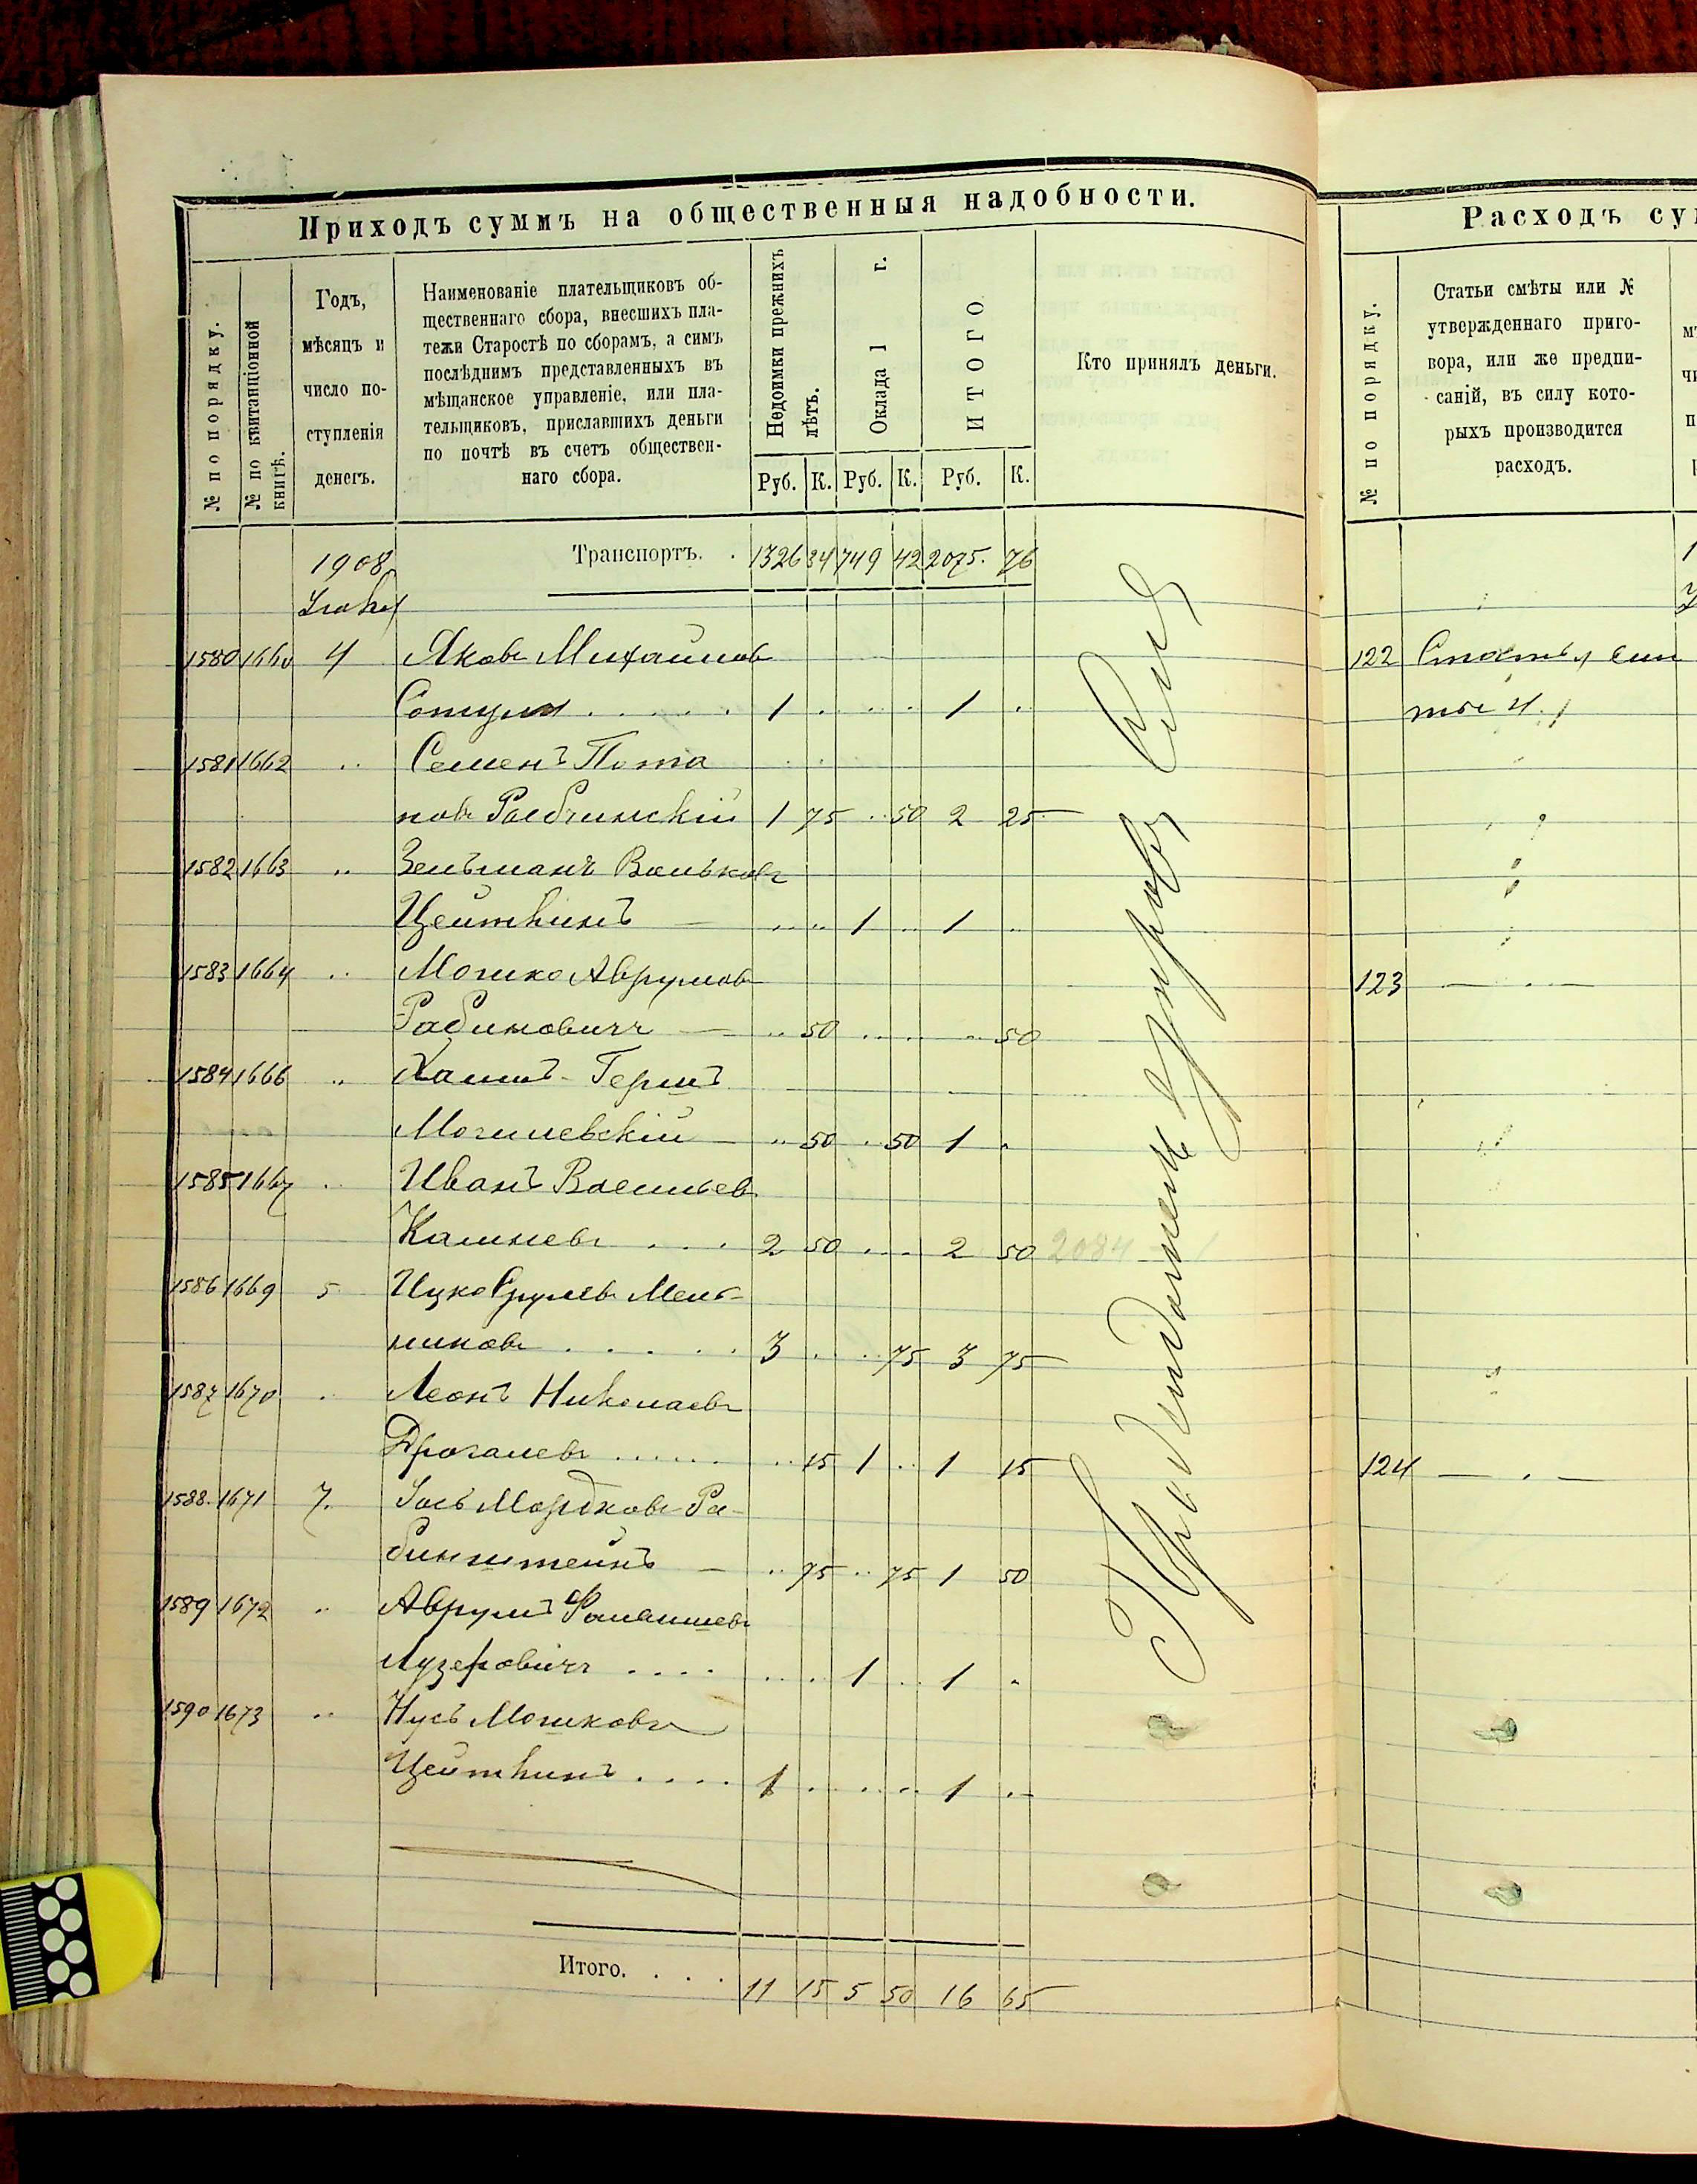 Приходъ суммъ на общественныя надобности.
№ по порядку.
№ по квитанціонной книгѣ.
Годъ,
мѣсяцъ и
число по-
ступленія
денегъ.
Наименованіе плательщиковъ об-
щественнаго сбора, внесшихъ пла-
тежи Старостѣ по сборамъ, а симъ
послѣднимъ представленныхъ въ
мѣщанское управленіе, или пла-
тельщиковъ, приславшихъ деньги
по почтѣ въ счетъ обществен-
наго сбора.
Недоимки прежнихъ лѣтъ.
Оклада 1 г.
ИТОГО
Кто принялъ деньги.
Руб. К. Руб. К. Руб. К.
1908 Транспортъ. . 1326 34 749 42 2075. 76
1580 1660 4 Яковъ Михайловъ
1 1
1581 1662 Семенъ Пота
повъ 1 75 50 2 25
1582 1663 Зельманъ Вольковъ
Цейтлинъ 1 1
1583 1664 Мошко Аврумовъ
Рабиновичъ 50 50
1584 1666 Хаимъ-Гершъ
Могилевскій 50 50 1
1585 1667 Иванъ Васильев
2 50 2 50 2084
1586 1669 5 Ицко Срулевъ Мель-
никовъ 3 75 3 75
1587 1670 Леонъ Николаевъ
15 1 1 15
1588. 1671 7. Мордковъ Ра-
бинштейнъ 75 75 1 50
1589 1672 Аврумъ
Лузеровичъ 1 1
1590 1673 Нусъ Мошковъ
Цейтлинъ 1 1
Итого. . . . 11 15 5 50 16 65
Расходъ су
№ по порядку.
Статьи смѣты или №
утвержденнаго приго-
вора, или же предпи-
саній, въ силу кото-
рыхъ производится
расходъ.
122 Статья см
ты 4.
123
124